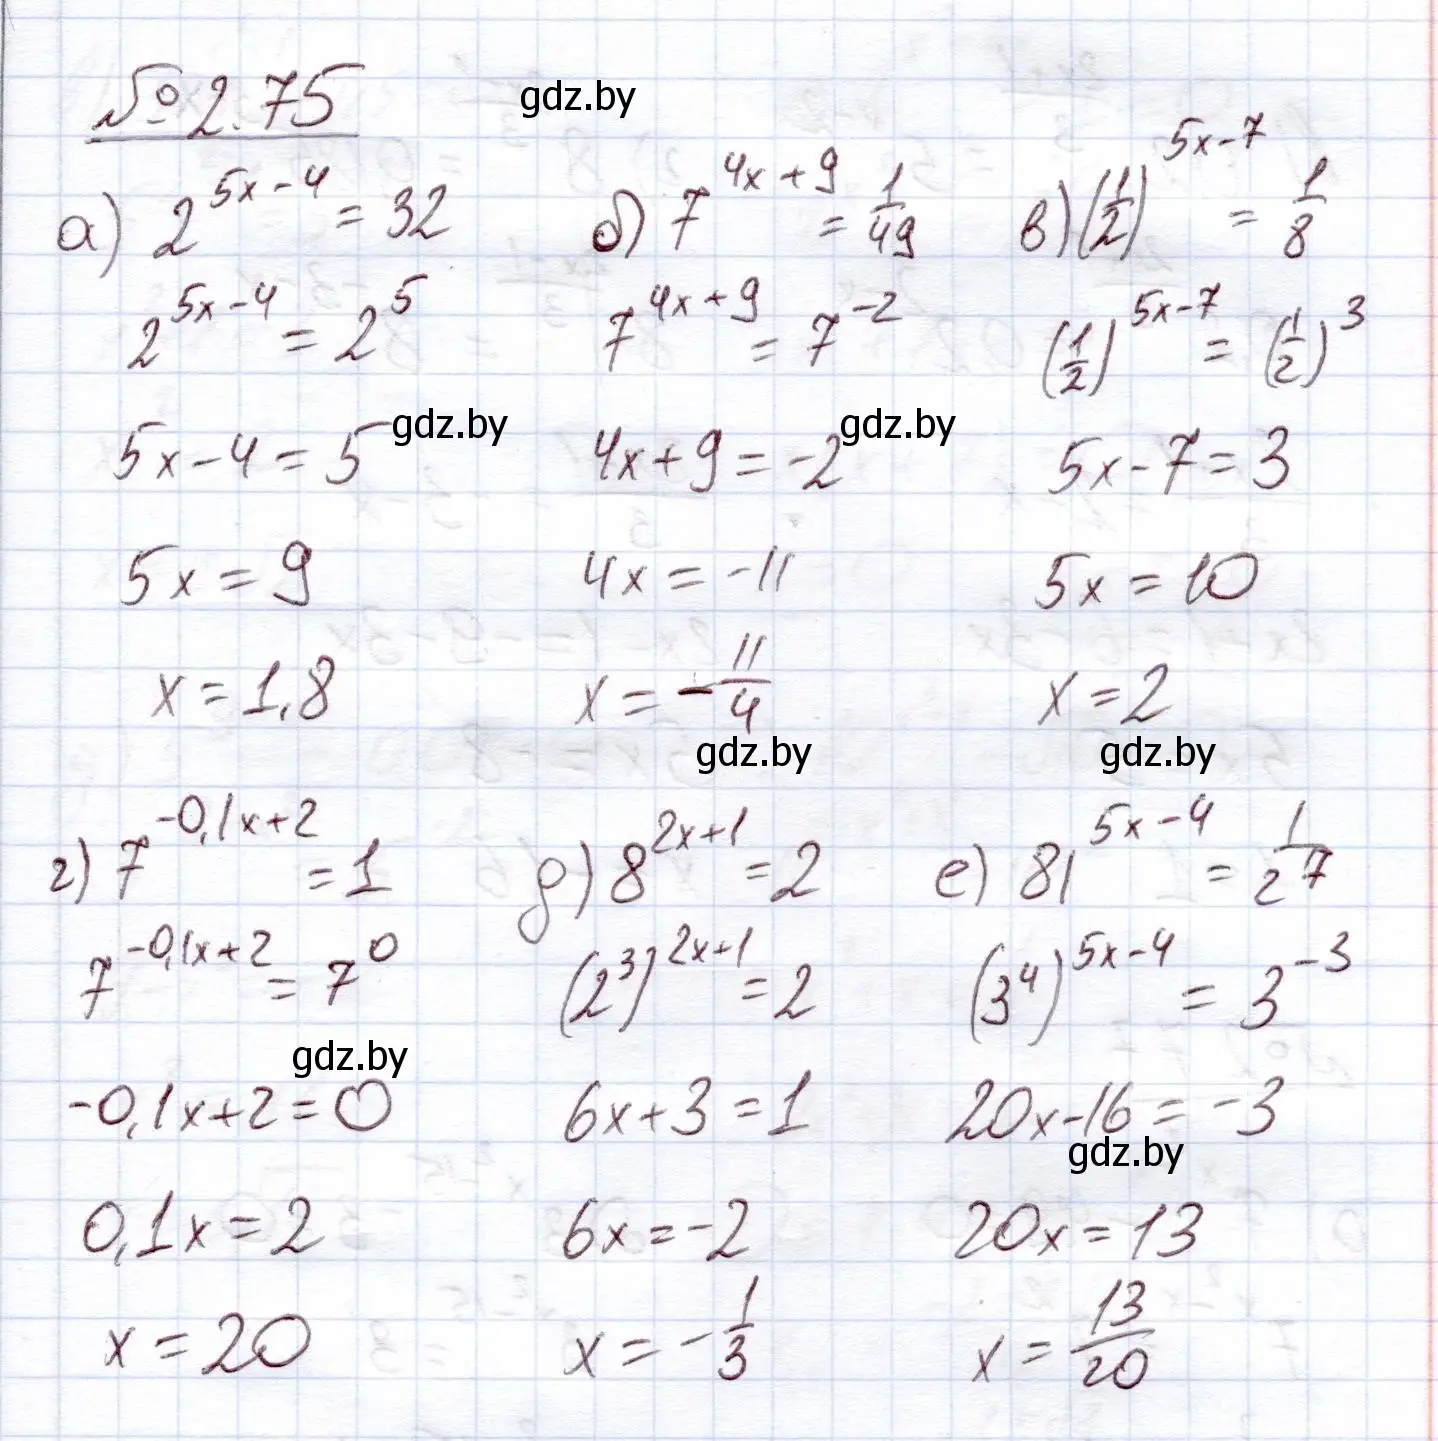 № 2.75
gdz.by
а) 2^(5x-4) = 32
2^(5x-4) = 2^5
5x-4 = 5
gdz.by
5x = 9
x = 1,8
б) 7^(4x+9) = 1/49
7^(4x+9) = 7^(-2)
4x+9 = -2
gdz.by
4x = -11
x = -11/4
gdz.by
в) (1/2)^(5x-7) = 1/8
(1/2)^(5x-7) = (1/2)^3
5x-7 = 3
5x = 10
x = 2
gdz.by
г) 7^(-0,1x+2) = 1
7^(-0,1x+2) = 7^0
gdz.by
-0,1x+2 = 0
0,1x = 2
x = 20
д) 8^(2x+1) = 2
(2^3)^(2x+1) = 2
6x+3 = 1
6x = -2
x = -1/3
е) 81^(5x-4) = 1/27
(3^4)^(5x-4) = 3^(-3)
20x-16 = -3
gdz.by
20x = 13
x = 13/20